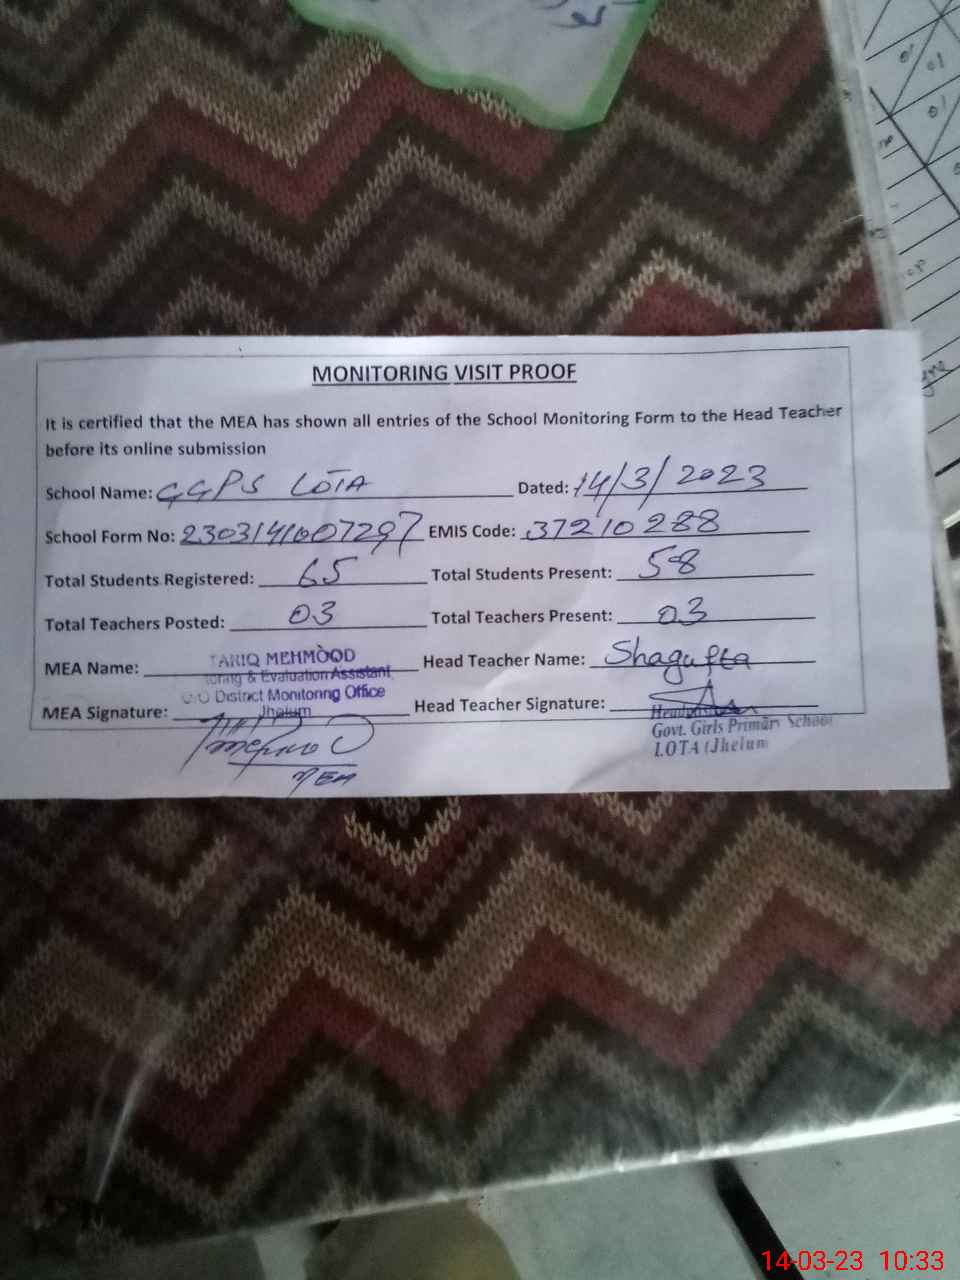 MONITORING VISIT PROOF
It is certified that the MEA has shown all entries of the School Monitoring Form to the Head Teacher
before its online submission
School Name: GGPS LOTA Dated: 14/3/2023
School Form No: 2303141007297 EMIS Code: 37210288
Total Students Registered: 65 Total Students Present: 58
Total Teachers Posted: 03 Total Teachers Present: 03
MEA Name: TARIQ MEHMOOD Head Teacher Name: Shagufta
oring & Evaluation Assistant
O/O District Monitoring Office
MEA Signature: Jhelum Head Teacher Signature:
Govt. Girls Primary School
LOTA (Jhelum
MEA
14-03-23 10:33